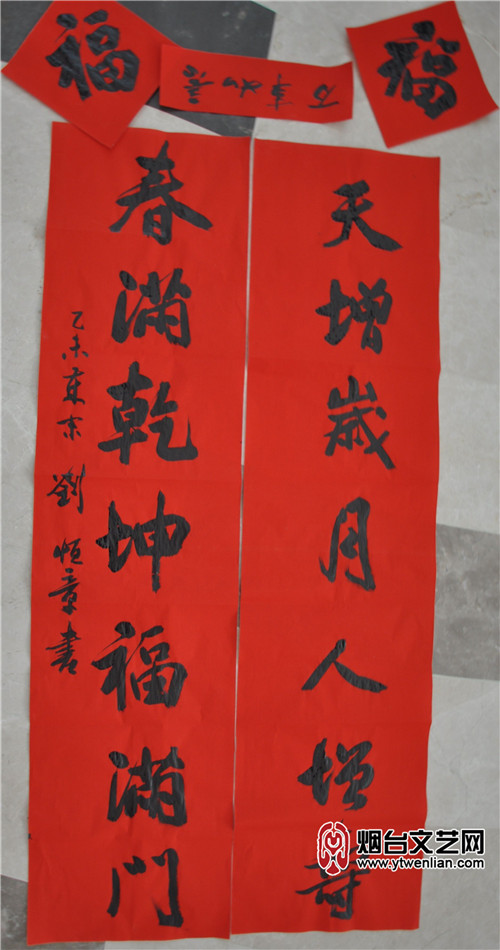 福
万事如意
福
天增歲月人增寿
春满乾坤福满门
乙未 劉恒章書
烟台文艺网
www.ytwenlian.com